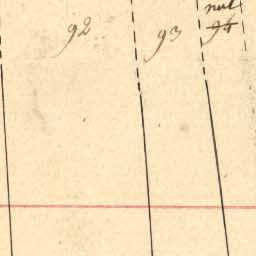 nul
92
93
94